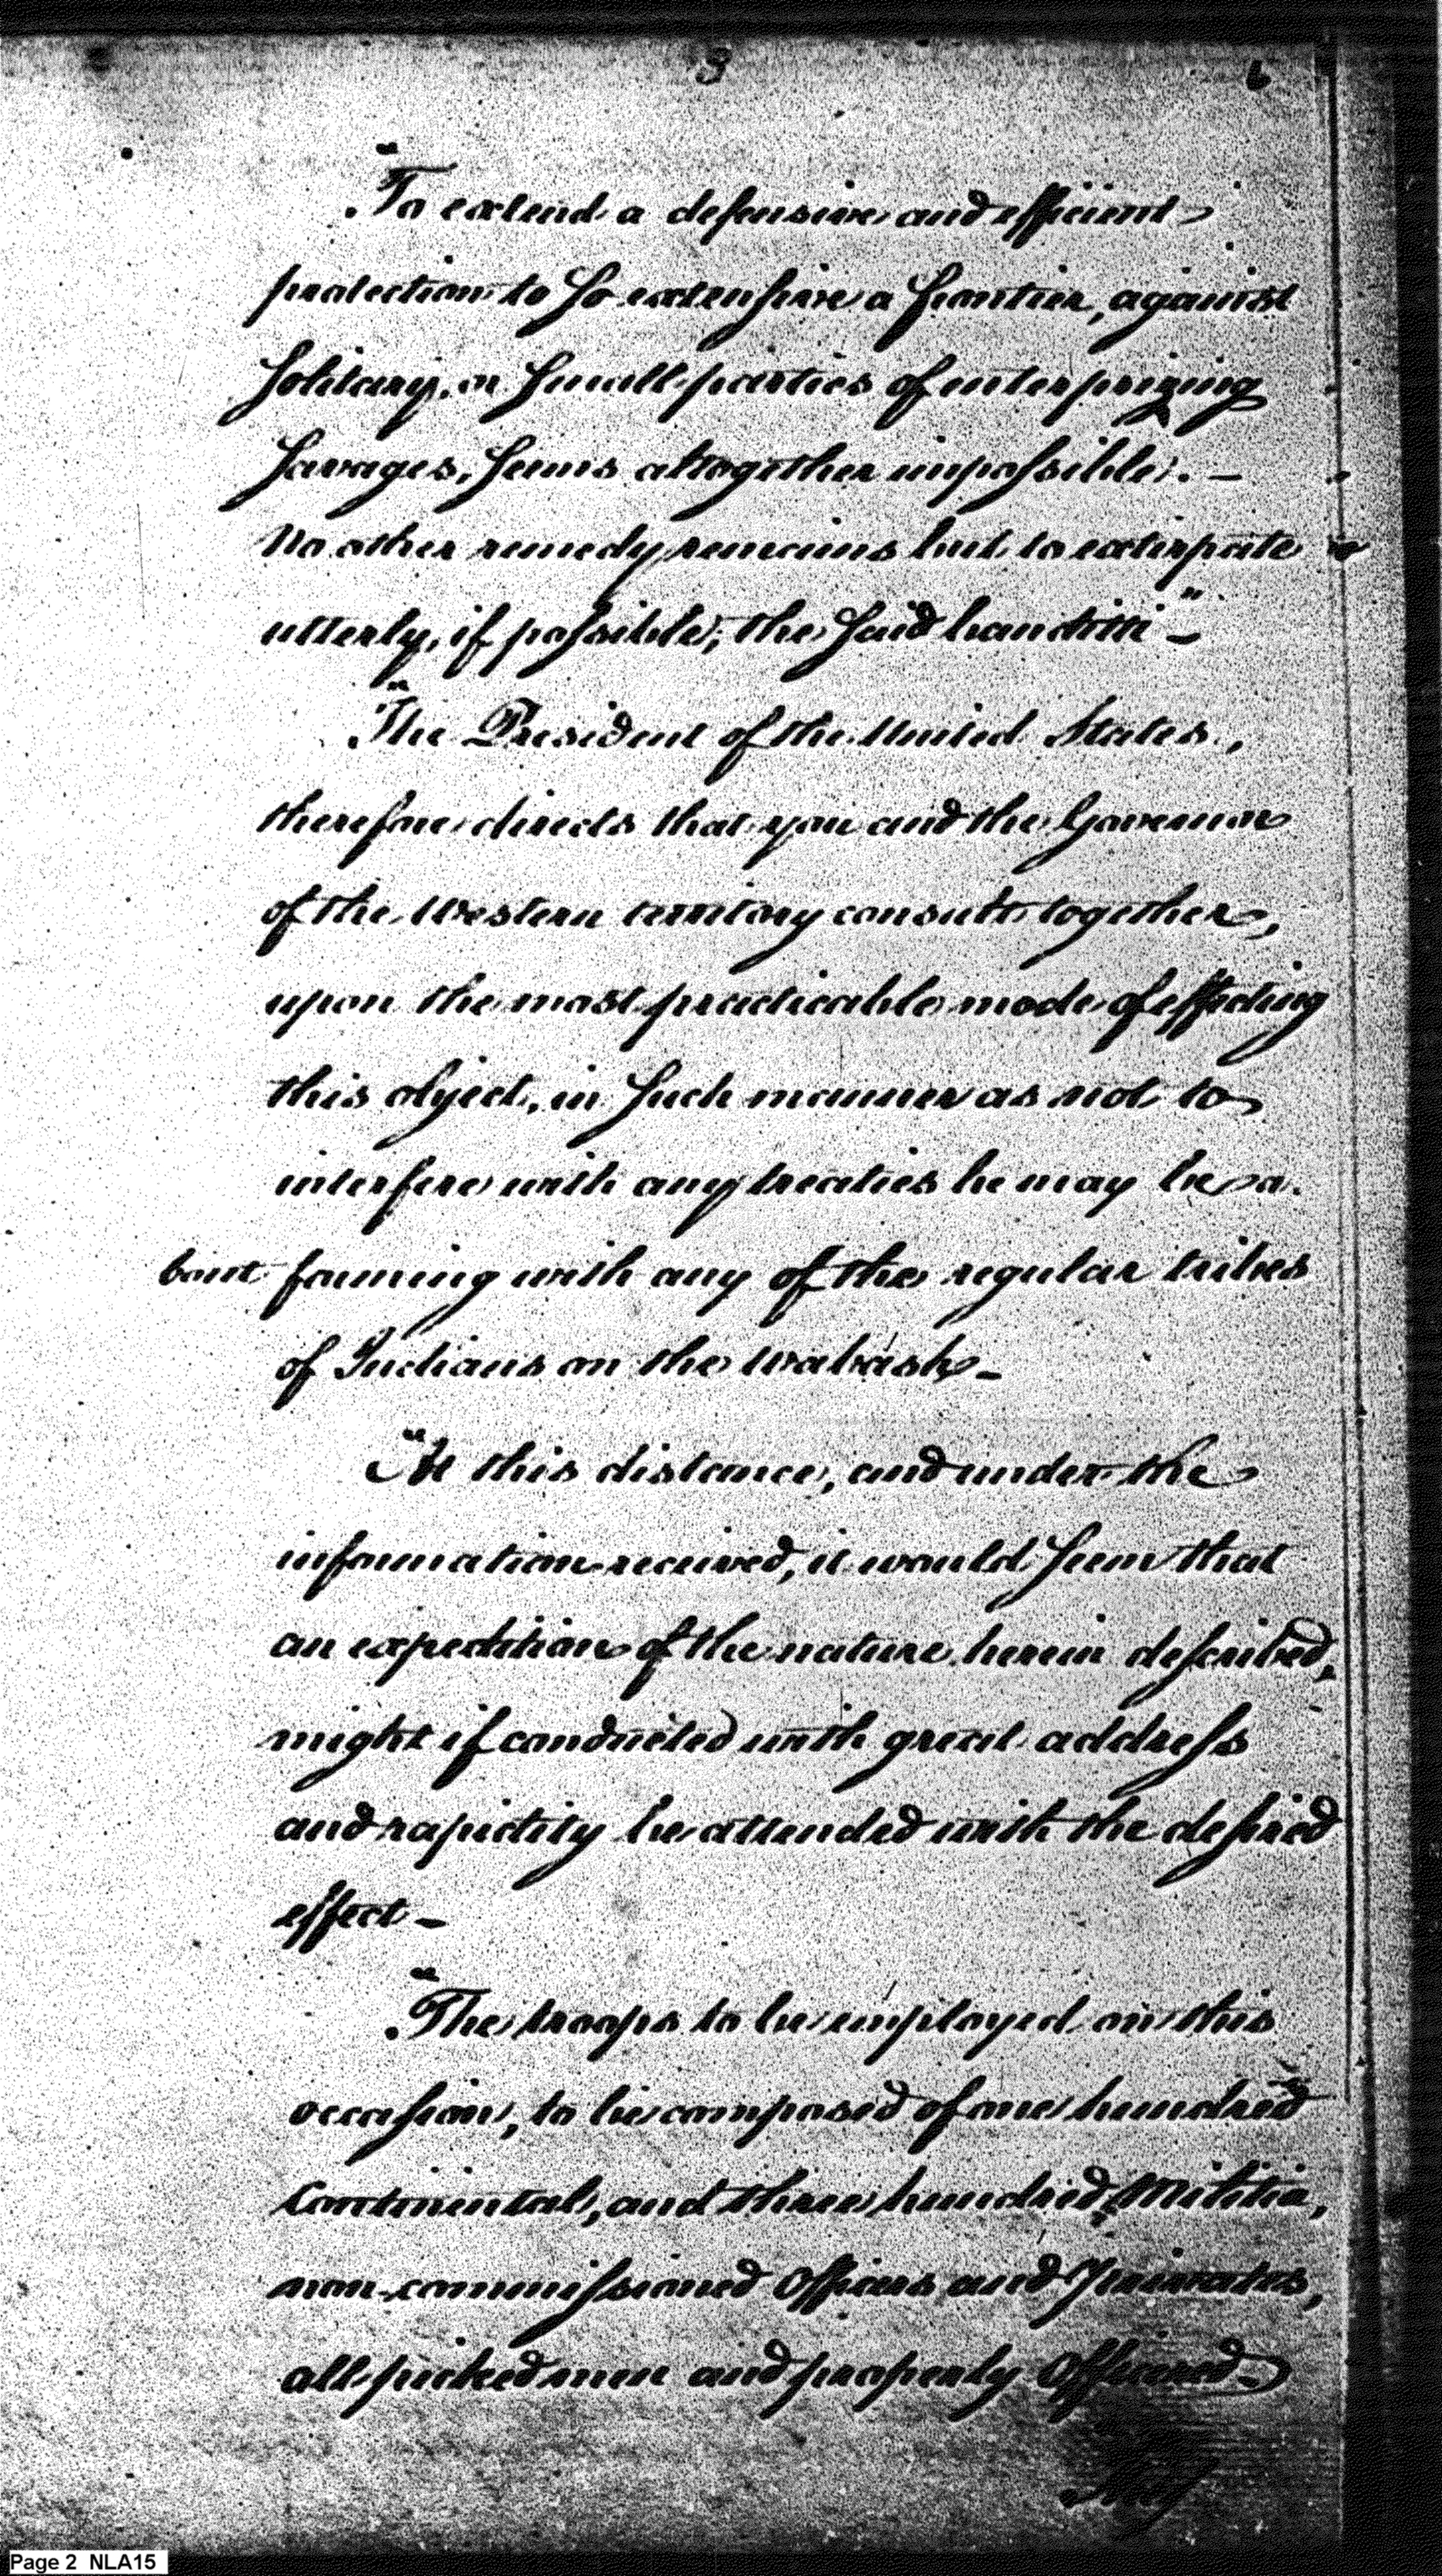 3 6
"To extend a defensive and efficient
protection to so extensive a frontier, against
Solitary, or Small parties of enterprizing
Savages, Seems altogether impossible. —
No other remedy remains but to extirpate
utterly, if possible, the Said banditti" —
"The President of the United States,
therefore directs that you and the Governor
of the Western territory consult together,
upon the most practicable mode of effecting
this object, in Such manner as not to
interfere with any treaties he may be a-
bout forming with any of the regular tribes
of Indians on the Wabash —
"At this distance, and under the
information received, it would Seem that
an expedition of the nature herein described,
might if conducted with great address
and rapidity be attended with the desired
effect —
"The troops to be employed on this
occasion, to be composed of one hundred
Continental, and three hundred Militia,
non-commissioned Officers and Privates,
all picked men and properly Officered —
Page 2 NLA15